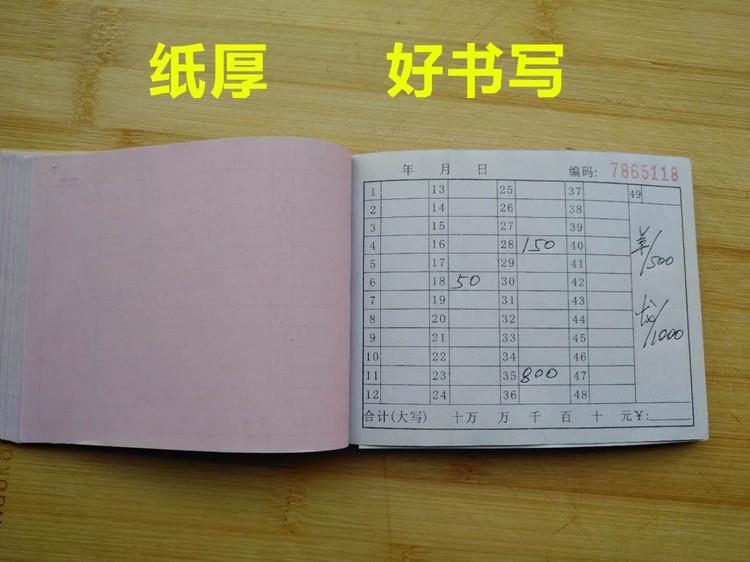 纸厚 好书写
年 月 日 编码: 7865118
1 13 25 37 49
2 14 26 38
3 15 27 39
4 16 28 150 40
5 17 29 41
6 18 50 30 42
7 19 31 43
8 20 32 44
9 21 33 45
10 22 34 46
11 23 35 800 47
12 24 36 48
羊/500
龙/1000
合计(大写) 十万 万 千 百 十 元¥: